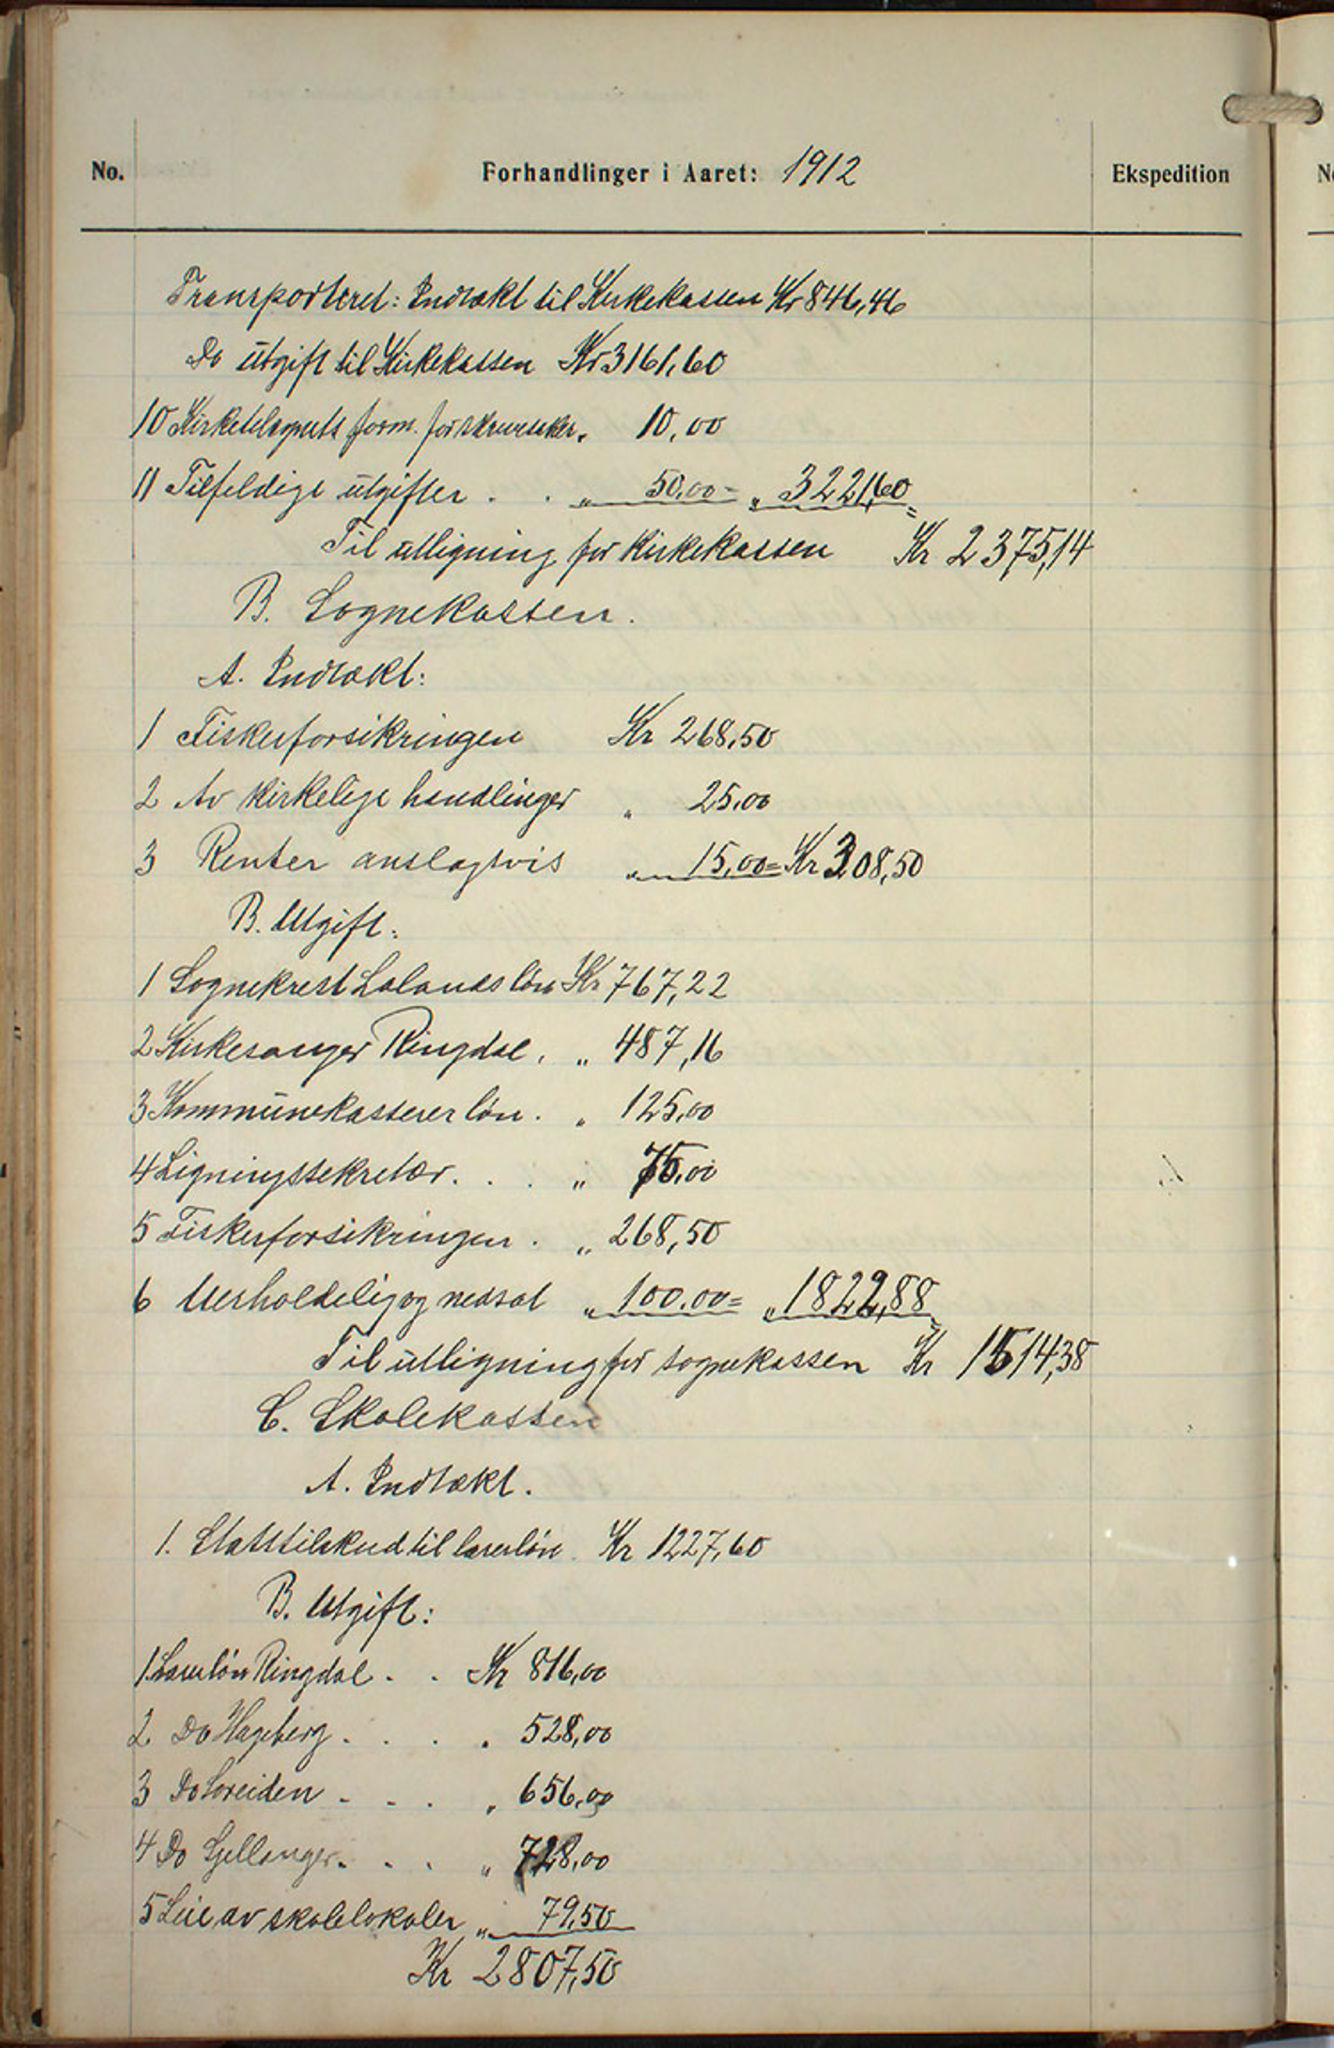 No. Forhandlinger i Aaret: 1912 Ekspedition
Transporteret: Indtækt til Kirkekassen Kr 846,46
Do utgift til Kirkekassen Kr 3161,60
10 Kirketilsynets form. for skrivsaker. 10,00
11 Tilfeldige utgifter . . „ 50,00 = „ 3221,60
Til utligning for Kirkekassen Kr 2375,14
B. Sognekassen.
A. Indtækt:
1 Fiskerforsikringen Kr 268,50
2 Av kirkelige handlinger „ 25,00
3 Renter anslagsvis „ 15,00 = Kr 308,50
B. Utgift:
1 Sogneprest Lalands løn Kr 767,22
2 Kirkesanger Ringdal . „ 487,16
3 Kommunekasserer løn . „ 125,00
4 Ligningssekretær . . . „ 75,00
5 Fiskerforsikringen . „ 268,50
6 Uerholdelig og nedsat „ 100,00 = „ 1822,88
Til utligning for sognekassen Kr 1514,38
C. Skolekassen
A. Indtækt.
1. Statstilskud til lærerløn Kr 1227,60
B. Utgift:
1 Lærerløn Ringdal . . Kr 816,00
2 Do Hageberg . . . „ 528,00
3 Do Soreiden - - . „ 656,00
4 Do Gjellanger . . . „ 728,00
5 Leie av skolelokaler „ 79,50
Kr 2807,50